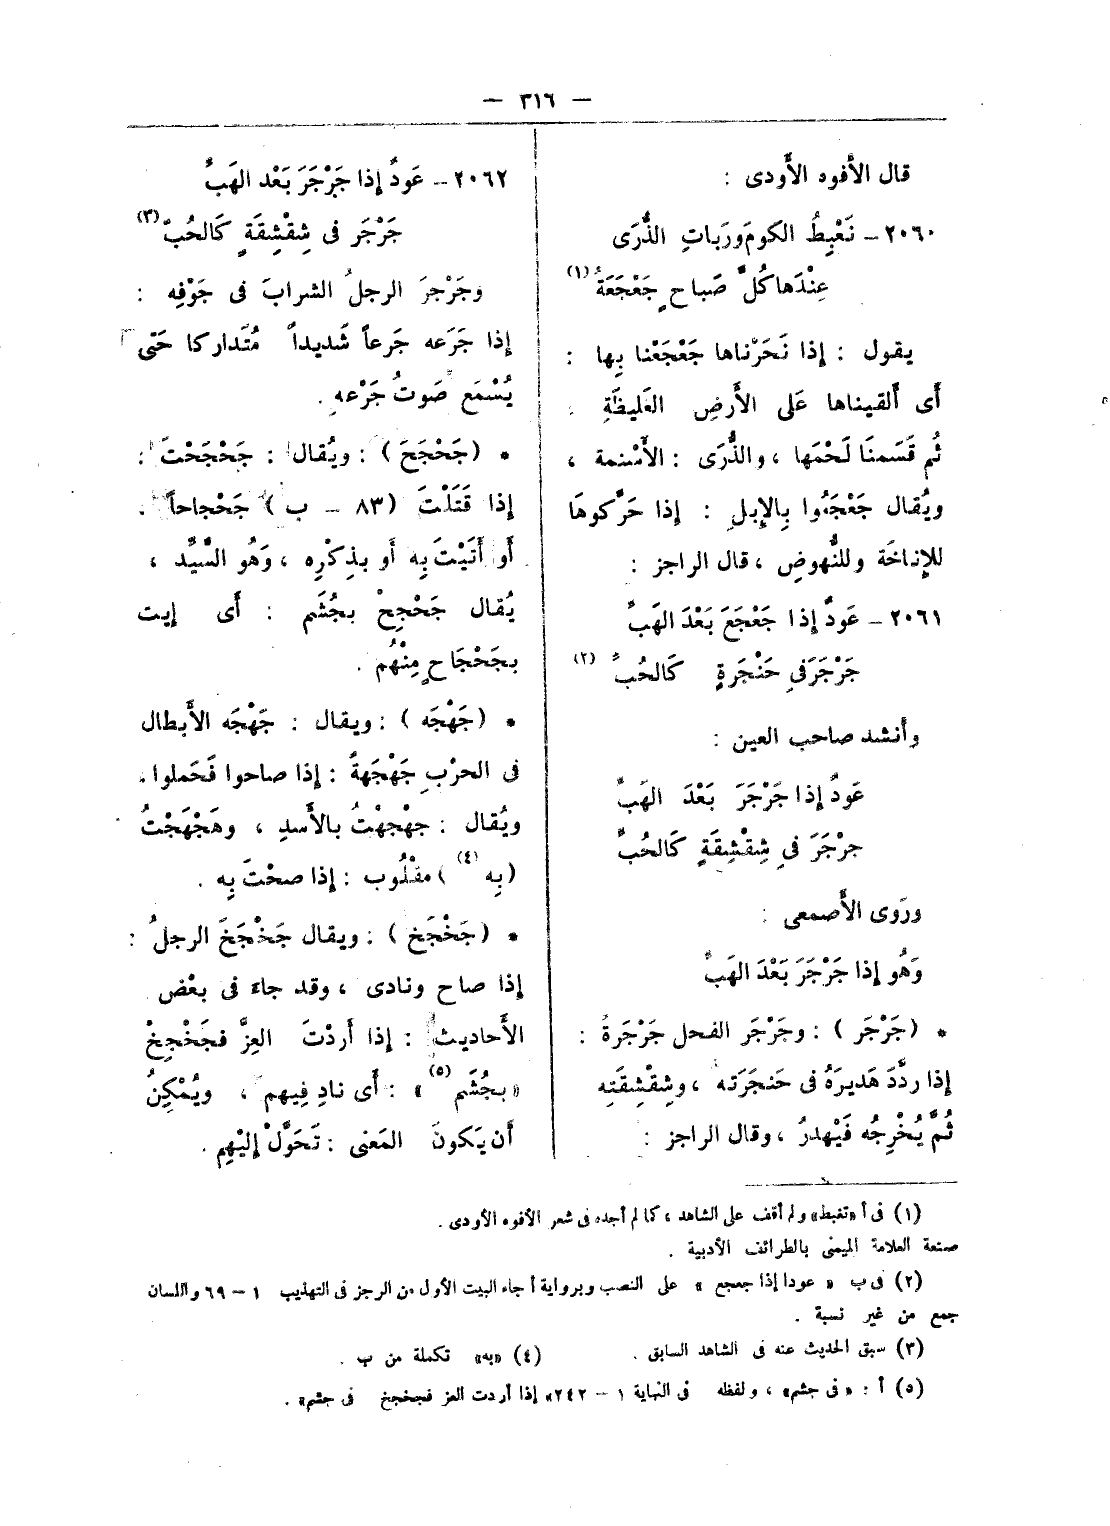 — ٣١٦ —
قال الأَفوه الأَودى :
٢٠٦٠ – نَعْبِطُ الكَومَ ورَباتِ الذُّرَى
عِنْدَها كُلَّ صَباحٍ جَعْجَعَةُ (١)
يقول : إذا نَحَرْناها جَعْجَعْنا بِها :
أَى أَلقيناها عَلى الأَرضِ الغَليظَةِ .
ثُم قَسَمنَا لَحْمَها ، والذُّرَى : الأَسْنمة ،
ويُقال جَعْجَعُوا بِالإِبلِ : إذا حَرَّكوهَا
للإِناخَة وللنُّهوضِ ، قال الراجز :
٢٠٦١ – عَودٌ إذا جَعْجَعَ بَعْدَ الهَبِّ
جَرْجَرَ فىِ حَنْجَرةٍ كَالحُبِّ (٢)
وأَنشد صاحب العين :
عَودٌ إذا جَرْجَرَ بَعْدَ الهَبِّ
جرْجَرَ فىِ شِقْشِقَةٍ كَالحُبِّ
ورَوى الأَصمعى :
وَهُو إذا جَرْجَرَ بَعْدَ الهَبِّ
* (جَرْجَر ) : وجَرْجَر الفحل جَرْجَرةً :
إذا ردَّدَ هَديرَهُ فى حَنجَرَته ، وشِقْشِقَتِه
ثُمَّ يُخْرِجُه فَيْهدرُ ، وقال الراجز :
٢٠٦٢ – عَودٌ إذا جَرْجَرَ بَعْد الهَبِّ
جَرْجَر فى شِقْشِقَةٍ كَالحُبّ (٣)
وجَرْجرَ الرجلُ الشرابَ فى جَوْفِه :
إذا جَرَعه جَرعاً شَديداً مُتَداركا حَتى
يُسْمَع صَوتُ جَرْعه .
* (جَحْجَحَ ) : ويُقال : جَحْجَحْتَ :
إذا قَتَلْتَ (٨٣ – ب ) جَحْجاحاً .
أَو أَتَيْتَ بِه أَو بذِكْرِه ، وَهُو السَّيِّد ،
يُقال جَحْجِحْ بجُشَم : أَى إيت
بجَحْجَاحٍ مِنْهُم .
* (جَهْجَه ) : ويقال : جَهْجَه الأَبطال
فى الحرْبِ جَهْجَهةً : إذا صاحوا فَحَملوا .
ويُقال : جهْجهْتُ بالأَسدِ ، وهَجْهَجْتُ
(بِه (٤) ) مقْلُوب : إذا صحْتَ بِه .
* (جَخْجَخ ) : ويقال جَخْجَخَ الرجلُ :
إذا صاح ونادى ، وقد جاءَ فى بعْض
الأَحاديث : إذا أَردْتَ العِزَّ فجَخْجِخْ
« بجُشَم (٥) » : أَى نادِ فِيهم ، ويُمْكِنُ
أَن يَكونَ المَعنى : تَحَوَّلْ إليْهِم .
(١) فى أ «تغبط» ولم أقف على الشاهد ، كما لم أجده فى شعر الأفوه الأودى .
صنعة العلامة الميمنى بالطرائف الأدبية .
(٢) فى ب « عودا إذا جعجع » على النصب وبرواية أ جاء البيت الأول من الرجز فى التهذيب ١ – ٦٩ واللسان
جمع من غير نسبة .
(٣) سبق الحديث عنه فى الشاهد السابق . (٤) «به» تكملة من ب .
(٥) أ : « فى جشم» ، ولفظه فى النهاية ١ – ٢٤٢ «إذا أردت العز فجخجخ فى جشم» .